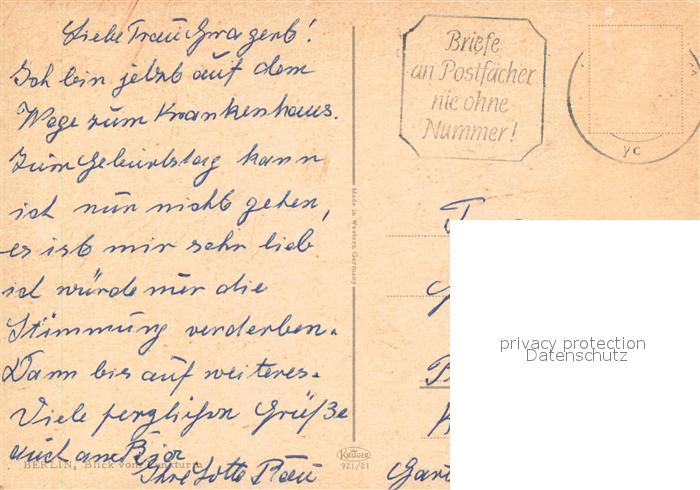 Liebe Frau Gwagerb!
Ich bin jetzt auf dem
Wege zum Krankenhaus.
Zum Geburtstag kann
ich nun nicht gehen,
es ist mir sehr lieb
ich würde nur die
Stimmung verderben.
Dann bis auf weiteres.
Viele herzlichen Grüße
auch am
Ihre Lotte
BERLIN, Blick vom Funkturm
Briefe
an Postfächer
nie ohne
Nummer!
yc
Made in Western Germany
KRÜGER
921/21
privacy protection
Datenschutz